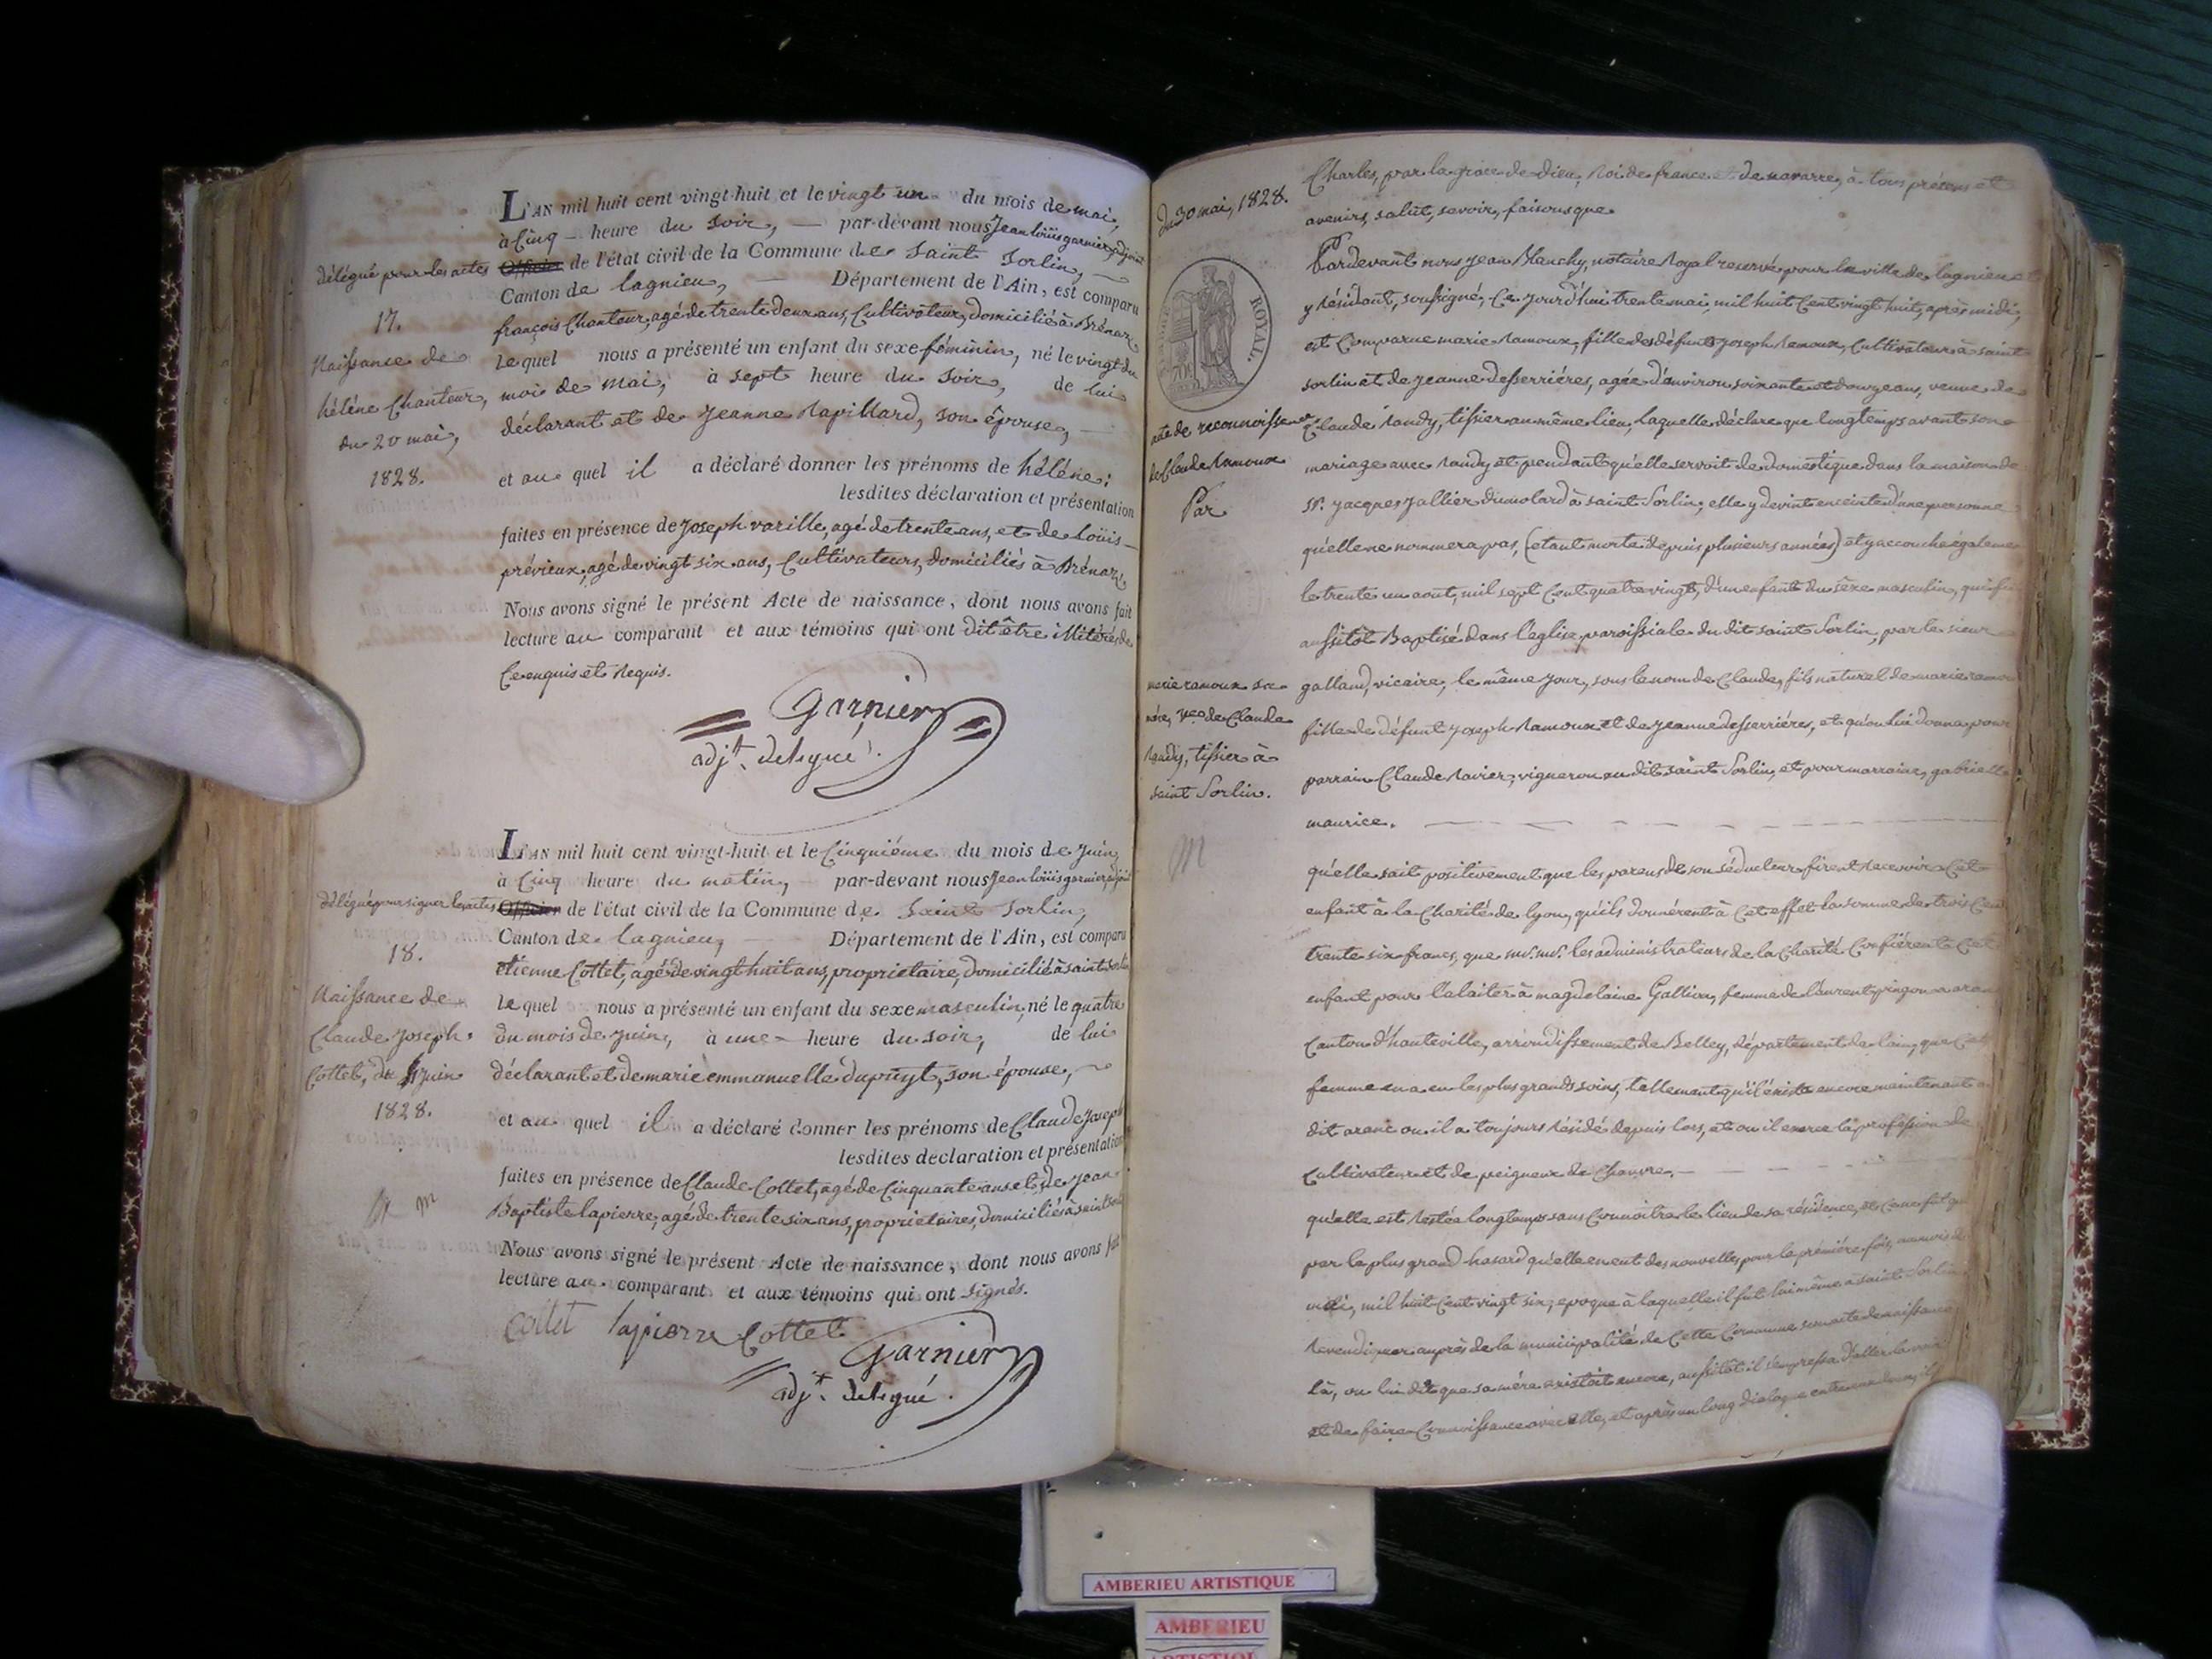 L'AN mil huit cent vingt-huit et le vingt un du mois de mai,
à Cinq heure du soir, par-devant nous Jean loüis garnier, adjoint
délégué pour les actes Officier de l'état civil de la Commune de Saint Sorlin,
Canton de lagnieu, Département de l'Ain, est comparu
françois Chanteur, agé de trente deux ans, Cultivateur, domicilié à Brénaz
Lequel nous a présenté un enfant du sexe féminin, né le vingt du
mois de mai, à sept heure du soir, de lui
déclarant et de jeanne Rapillard, son épouse,
et au quel il a déclaré donner les prénoms de héléne;
lesdites déclaration et présentation
faites en présence de joseph varille, agé de trente ans, et de Loüis
prévieux, agé de vingt six ans, Cultivateurs, domiciliés à Brénaz,
Nous avons signé le présent Acte de naissance, dont nous avons fait
lecture au comparant et aux témoins qui ont dit être illitérés, de
Ce enquis et Requis.
17.
Naissance de
héléne Chanteur,
du 20 mai,
1828.
Garnier
adjt. délégué.
L'AN mil huit cent vingt-huit et le Cinquiéme du mois de juin,
à Cinq heure du matin, par-devant nous Jean loüis garnier, adjoint
délégué pour signer les actes Officier de l'état civil de la Commune de Saint Sorlin,
Canton de lagnieu, Département de l'Ain, est comparu
etienne Cottet, agé de vingt huit ans, propriétaire, domicilié à saint Sorlin
Lequel nous a présenté un enfant du sexe masculin, né le quatre
du mois de juin, à une heure du soir, de lui
déclarant et de marie emmanuelle dupuyt, son épouse,
et au quel il a déclaré donner les prénoms de Claude Joseph
lesdites declaration et présentation
faites en présence de Claude Cottet, agé de Cinquante ans et de jean
Baptiste lapierre, agé de trente six ans, propriétaires, domiciliés à saint Sorlin
Nous avons signé le présent Acte de naissance, dont nous avons fait
lecture au comparant et aux témoins qui ont signés.
18.
Naissance de
Claude Joseph
Cottet, du juin
1828.
m
Collet lapierre Cottet
Garnier
adjt. délégué.
du 30 mai, 1828.
ROYAL.
70c
acte de reconnoissance
de Claude Ramoux
Par
marie ramoux sa
mére, ve. de Claude
Randy, tissier à
saint Sorlin.
M
Charles, par la grace de dieu, Roi de france et de navarre, à tous présens et
avenirs, salut, savoir, faisons que
Pardevant nous jean Blanchy, notaire Royal reservé pour la ville de lagnieu et
y résidant, soussigné, Ce jourd'hui trente mai, mil huit Cent vingt huit, après midi,
est Comparue marie Ramoux, fille des défunts joseph Ramoux, Cultivateur à saint
sorlin et de jeanne desserriéres, agée d'environ soixante et douze ans, veuve de
Claude Randy, tissier au même lieu, laquelle déclare que longtemps avant son
mariage avec Randy et pendant qu'elle servoit de domestique dans la maison de
Sr. jacques jallier dumolard à saint Sorlin, elle y devint enceinte d'une personne
qu'elle ne nommera pas, (etant morte depuis plusieurs années) et y accoucha égaleme
le trente un aout, mil sept Cent quatre vingt, d'un enfant du sexe masculin, qui fu
aussitôt Baptisé dans l'eglise paroissiale du dit saint Sorlin, par le sieur
galland, vicaire, le même jour, sous le nom de Claude, fils naturel de marie ramo
fille de défunt joseph Ramoux et de jeanne desserriéres, et qu'on lui donna pour
parrain Claude Ravier, vigneron au dit saint Sorlin, et pour marraine, gabrielle
maurice.
qu'elle sait positivement que les parens de son séducteur firent recevoir Cet
enfant à la Charité de lyon, qu'ils donnérent à Cet effet la somme de trois Cent
trente six francs, que mrs. les administrateurs de la Charité Confiérent Cet
enfant pour l'alaiter à magdelaine Gallion, femme de laurent pingon a aran
Canton d'hauteville, arrondissement de Belley, département de l'ain, que Cet
femme en a eu les plus grands soins, tellement qu'il éxiste encore maintenant a
dit aranc ou il a toujours résidé depuis lors, et ou il exerce la profession de
Cultivateur et de peigneur de Chanvre.
qu'elle est restée longtemps sans Connoitre le lieu de sa résidence, et Ce ne fut q
par le plus grand hasard qu'elle en eut des nouvelles pour la prémiére fois, au mois d
mai, mil huit Cent vingt six, epoque à laquelle il fut lui même à saint Sorlin
Revendiquer auprès de la municipalité de Cette Commune son acte de naissance
là, on lui dit que sa mére existait encore, aussitôt il s'empressa d'aller la voir
et de faire Connoissance avec elle, et après un long dialogue entre eux deux, il
AMBERIEU ARTISTIQUE
AMBERIEU
ARTISTIQUE